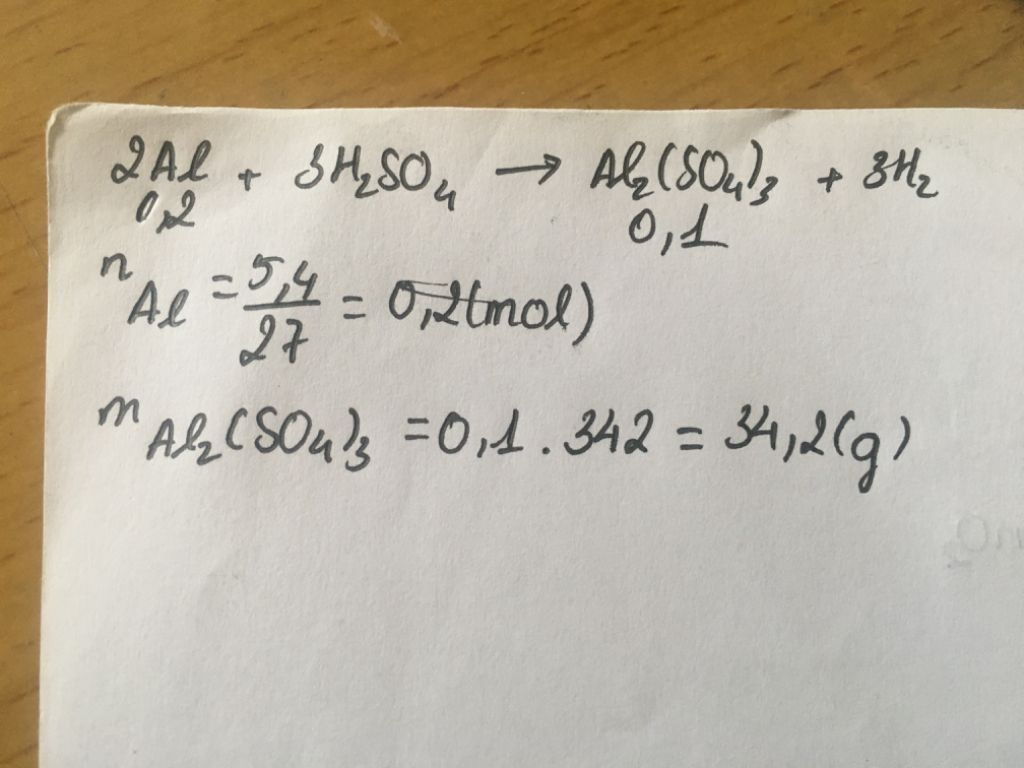 2Al + 3H₂SO₄ → Al₂(SO₄)₃ + 3H₂
0,2 0,1
nAl = 5,4/27 = 0,2(mol)
mAl₂(SO₄)₃ = 0,1 . 342 = 34,2(g)